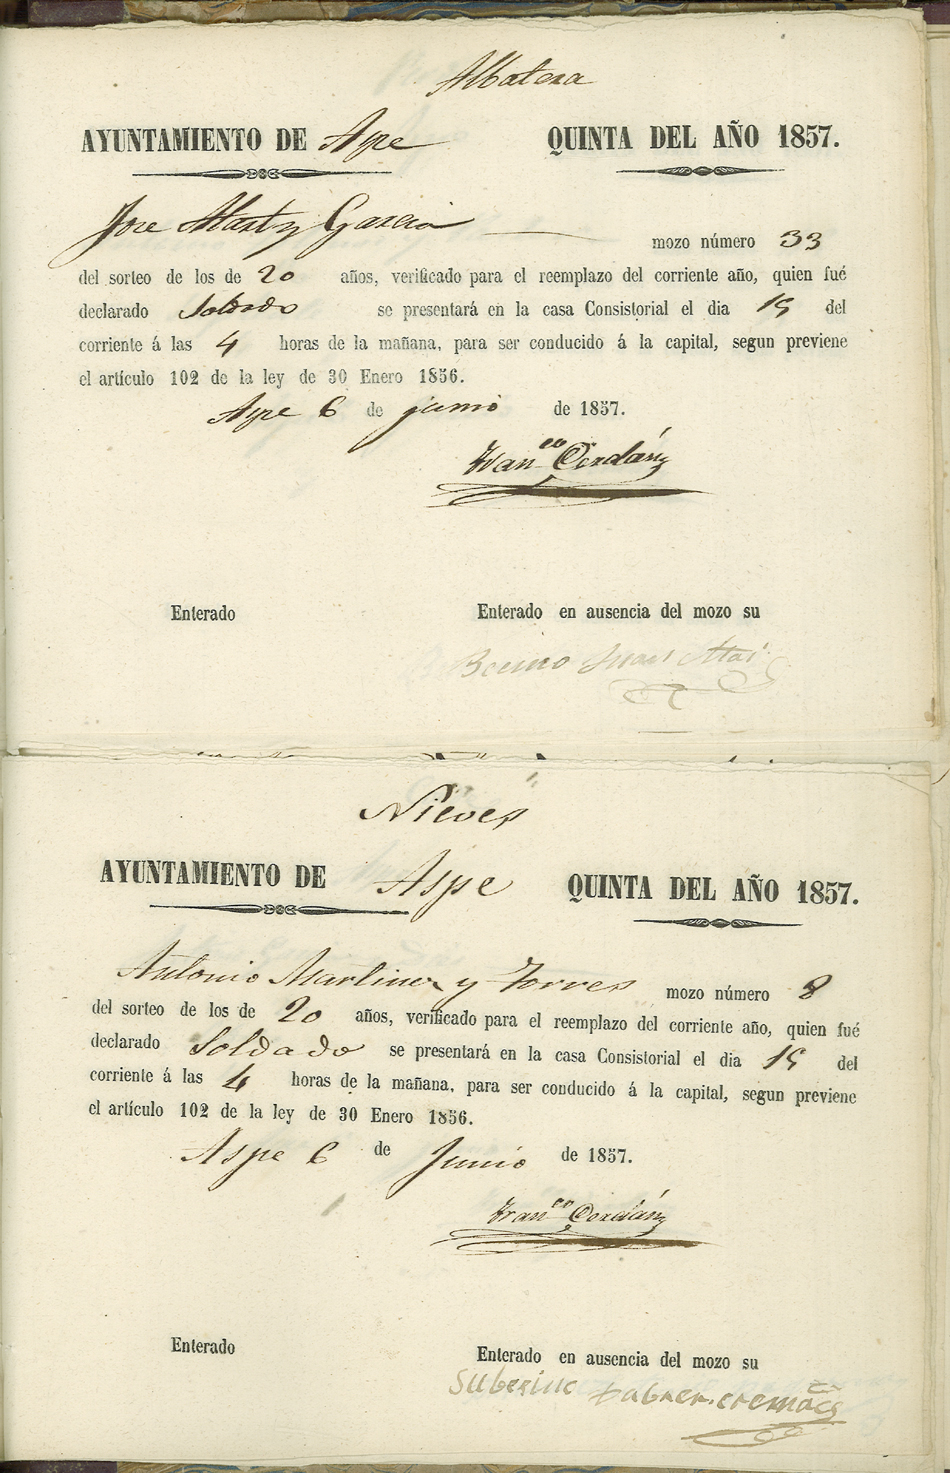 Albatera
AYUNTAMIENTO DE Aspe QUINTA DEL AÑO 1857.
Jose Mart y Garcia mozo número 33
del sorteo de los de 20 años, verificado para el reemplazo del corriente año, quien fué
declarado Soldado se presentará en la casa Consistorial el dia 15 del
corriente á las 4 horas de la mañana, para ser conducido á la capital, segun previene
el artículo 102 de la ley de 30 Enero 1856.
Aspe 6 de junio de 1857.
Fran.co Cerdán
Enterado Enterado en ausencia del mozo su
Juan
Nieves
AYUNTAMIENTO DE Aspe QUINTA DEL AÑO 1857.
Antonio Martinez y Torres mozo número 8
del sorteo de los de 20 años, verificado para el reemplazo del corriente año, quien fué
declarado Soldado se presentará en la casa Consistorial el dia 15 del
corriente á las 4 horas de la mañana, para ser conducido á la capital, segun previene
el artículo 102 de la ley de 30 Enero 1856.
Aspe 6 de Junio de 1857.
Fran.co Cerdán
Enterado Enterado en ausencia del mozo su